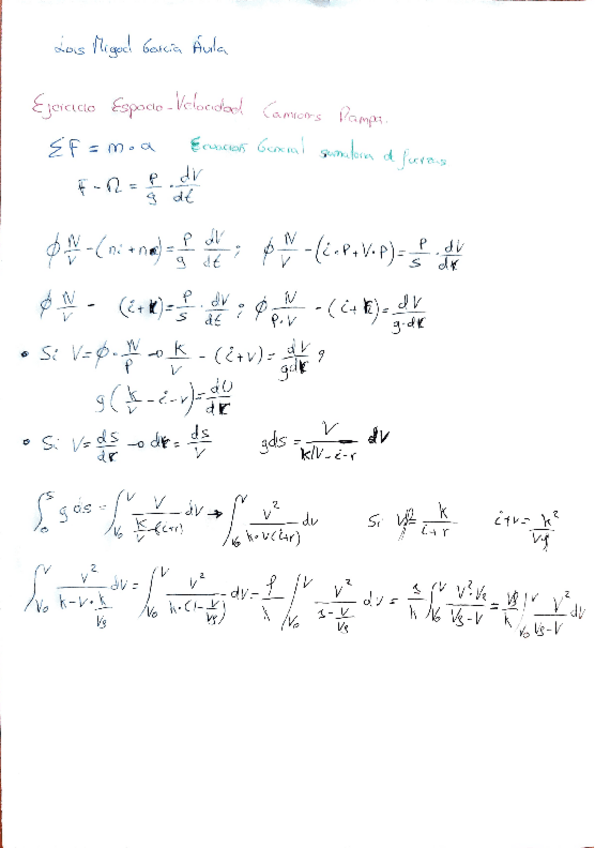 Luis Miguel García Ávila
Ejercicio Espacio-Velocidad Camiones Rampa.
ΣF = m·a Ecuación General sumatoria d fuerzas
F - Ω = P/g · dV/dt
ϕ N/V - (ni + nr) = P/g dV/dt ; ϕ N/V - (i·P + V·P) = P/g · dV/dt
ϕ N/V - (i + r) = P/g · dV/dt ; ϕ N/(P·V) - (i + r) = dV/(g·dt)
• Si V = ϕ · N/P → k/V - (i+v) = dV/(g dt) ;
g(k/V - i - r) = dV/dt
• Si V = ds/dt → dt = ds/V g ds = V/(k/V - i - r) dV
∫₀^S g ds = ∫_{V₀}^V V/(k/V - (i+r)) dV → ∫_{V₀}^V V²/(k - V(i+r)) dV Si Vg = k/(i+r) i+r = k/Vg
∫_{V₀}^V V²/(k - V·k/Vg) dV = ∫_{V₀}^V V²/(k·(1 - V/Vg)) dV = 1/k ∫_{V₀}^V V²/(1 - V/Vg) dV = 1/k ∫_{V₀}^V V²·Vg/(Vg - V) = Vg/k ∫_{V₀}^V V²/(Vg - V) dV